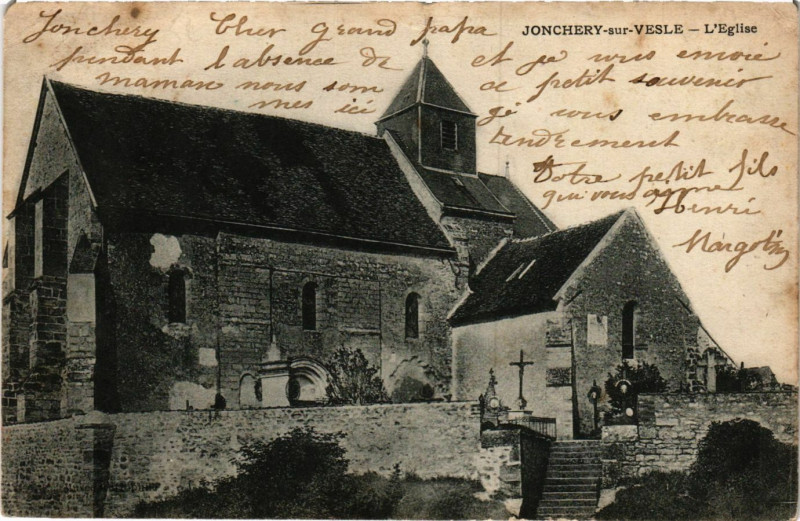 JONCHERY-sur-VESLE – L'Eglise
Jonchery Cher grand papa
pendant l'absence de
maman nous som
mes ici
et je vous envoie
ce petit souvenir
je vous embrasse
tendrement
Votre petit fils
qui vous aime
Henri
Margotin